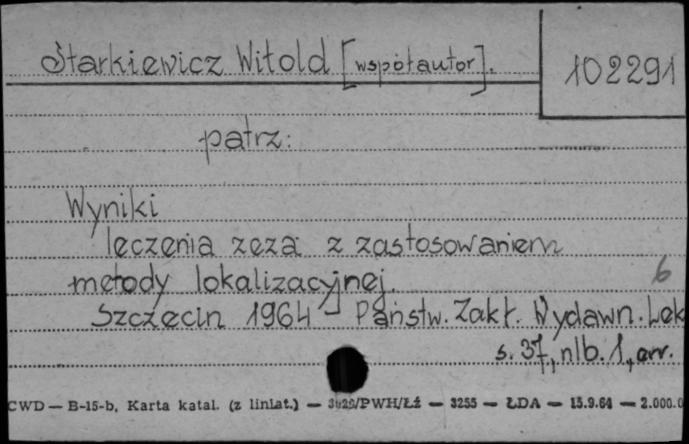 Starkiewicz Witold [współautor].
102291
patrz:
Wyniki
leczenia zeza z zastosowaniem
metody lokalizacyjnej.
6
Szczecin 1964 Państw. Zakł. Wydawn. Lek
s. 37, nlb. 1, err.
CWD — B-15-b. Karta katal. (z liniat.) — /PWH/Łź — 3255 — ŁDA — 15.9.64 — 2.000.0